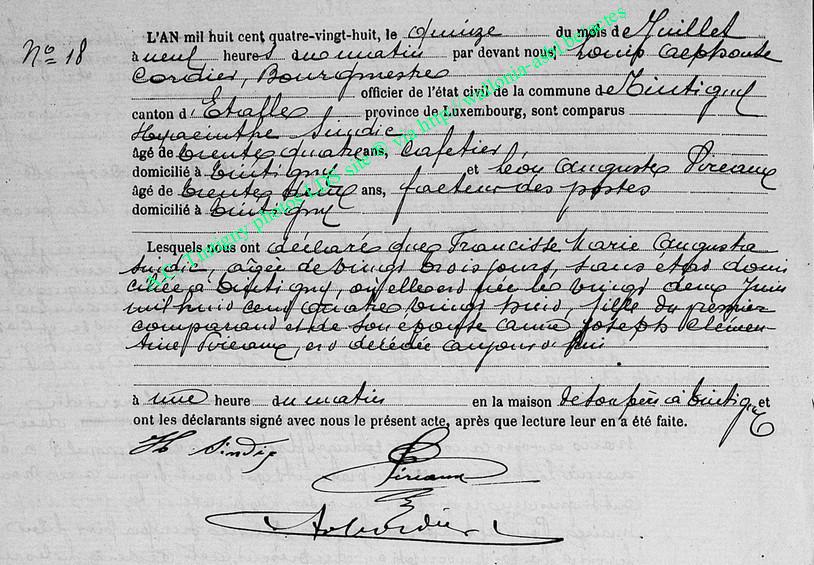 N° 18
L'AN mil huit cent quatre-vingt-huit, le quinze du mois de Juillet
à neuf heures du matin par devant nous, Louis Alphonse
Cordier, Bourgmestre
officier de l'état civil de la commune de Tintigny
canton d'Etalle province de Luxembourg, sont comparus
Hyacinthe Sindic
âgé de trente quatre ans, cafetier
domicilié à Tintigny et Léon Auguste Pireaux
âgé de trente ans, facteur des postes
domicilié à Tintigny
Lesquels nous ont déclaré que Francisse Marie Augusta
Sindic, agée de vingt trois jours, sans état domi
ciliée à Tintigny, où elle est née le vingt deux Juin
mil huit cent quatre vingt huit, fille du premier
comparant et de son épouse Anne Joseph Clémen
tine Pireaux, est décédée aujourd'hui
à une heure du matin en la maison de son père à Tintigny et
ont les déclarants signé avec nous le présent acte, après que lecture leur en a été faite.
H Sindic
Pireaux
A Cordier
A.C. Tintigny photos LDS site ® via http://wallonia-asbl.be/actes